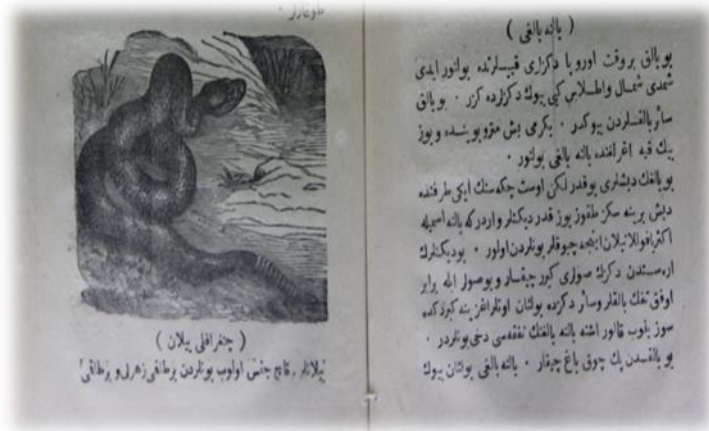 ( بالنه بالغی )
بو بالق بر وقت اوروپا دكزلری قییلرنده بولنور ایدی
شمدی شمال واطلاس كبی بیوك دكزلرده كزر ٠ بو بالق
سائر بالقلردن بیوكدر ٠ یكرمی بش مترو بوینده و یوز
بیك قیه اغرلغنده بالنه بالغی بولنور ٠
بو بالغك دیشلری یوقدر لكن اوست چكه سنك ایكی طرفنده
دیش یرینه سكز طقوز یوز قدر دیكنلر واردر كه بالنه اسمیله
قوللانیلان اینجه چبوقلر بونلردن اولور ٠ بو دیكنلرك
اره سندن دكزك صولری كیرر چیقار و بو صولر ایله برابر
اوفق تفك بالقلر وسائر دكزده بولنان اوتلر اغزینه كیرد كده
سوزیلوب قالور اشته بالنه بالغنك نفقه سی دخی بونلردر ٠
بو بالقدن پك چوق یاغ چیقار ٠ بالنه بالغی بولنان بیوك
( چنغراقلی ییلان )
ییلانلر قاچ جنس اولوب بونلردن بر طاقمی زهرلی و بر طاقمی